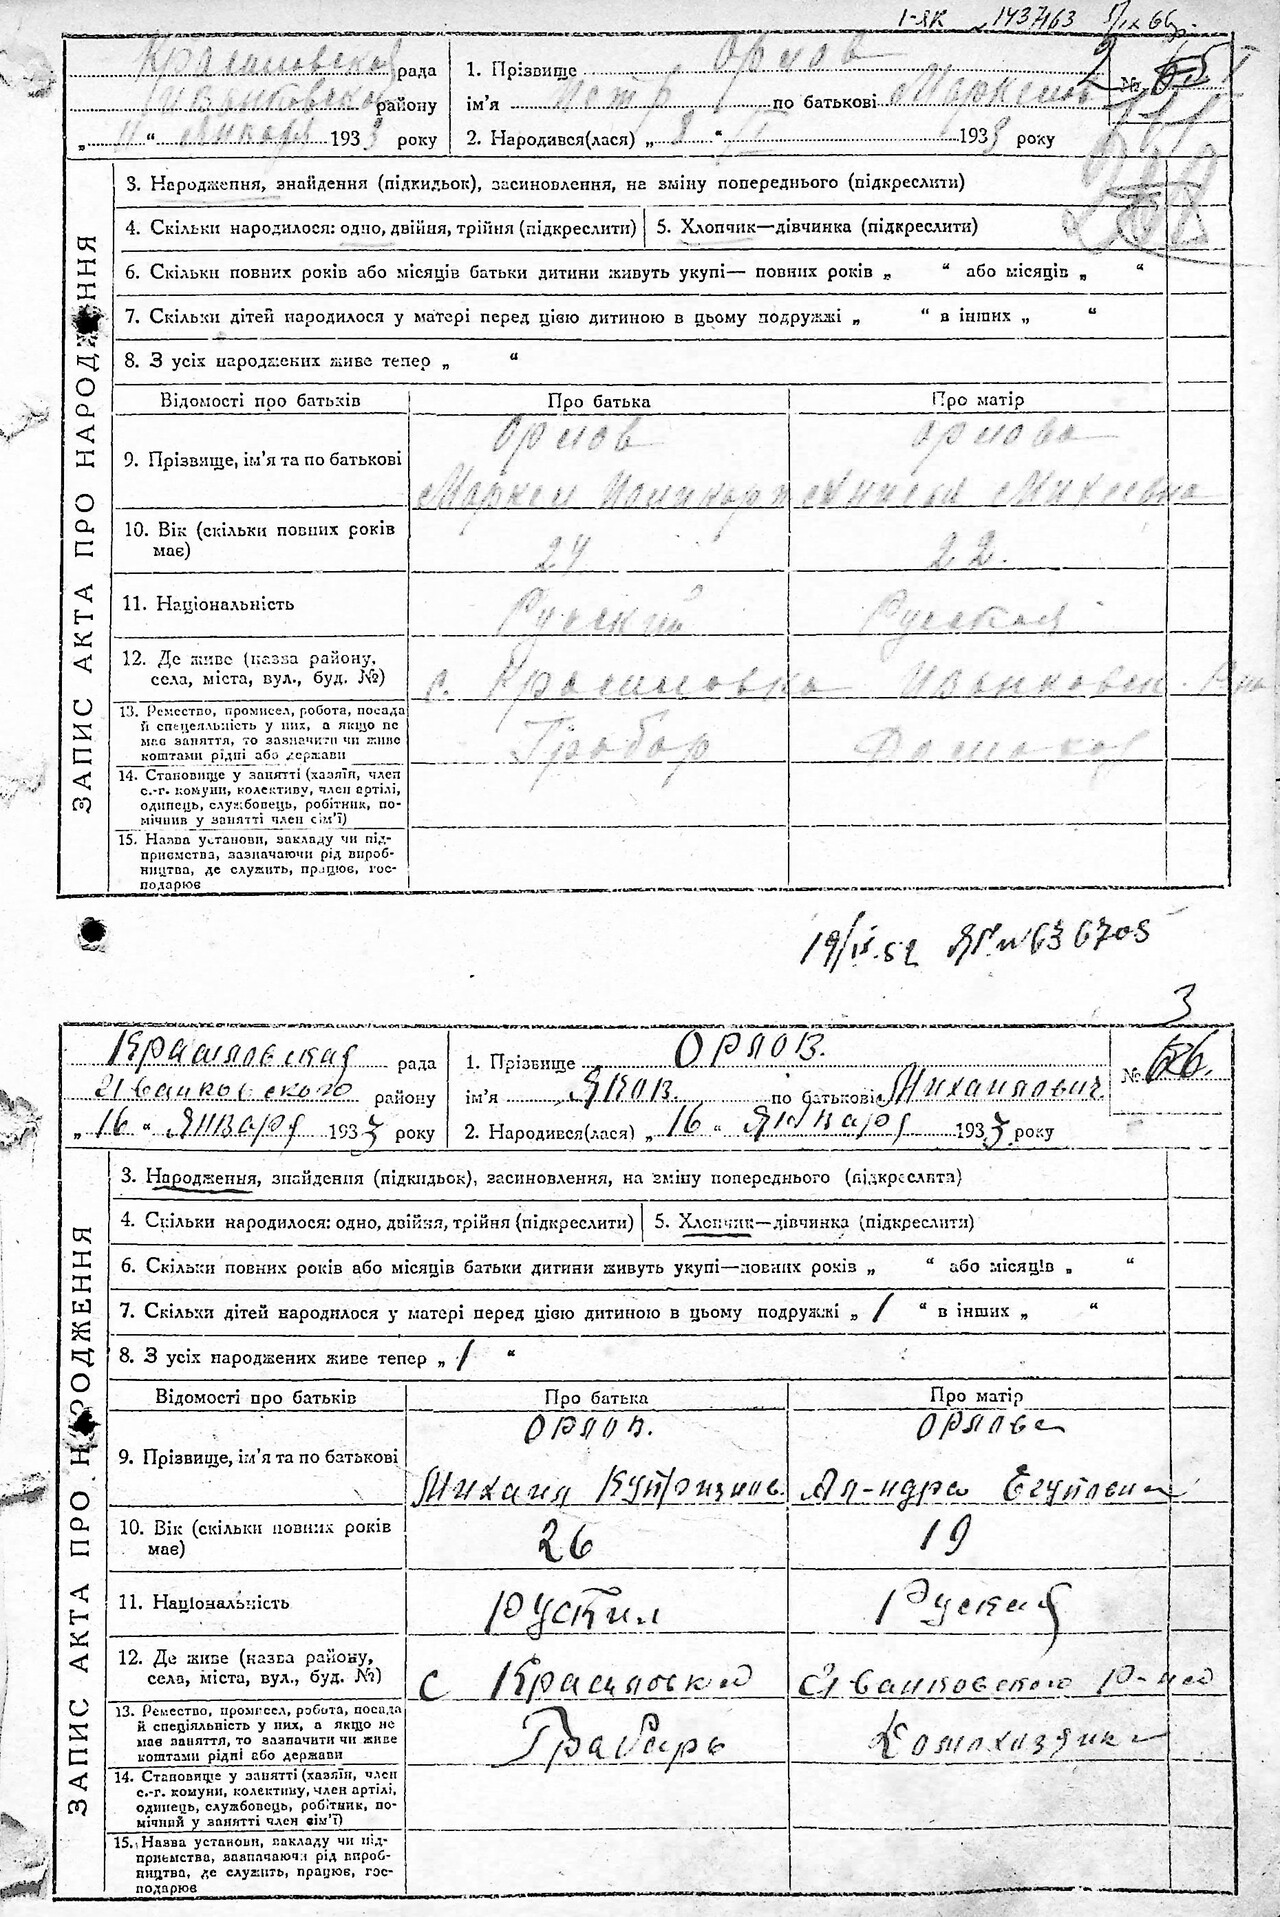 І-ЯК 1437463
Красиловская рада
Иванковского району
„ 11 “ Января 1933 року
1. Прізвище Орлов
ім'я Петр по батькові Маркелов
2. Народився(лася) „ 8 “ 1933 року
2
№ 65
ЗАПИС АКТА ПРО НАРОДЖЕННЯ
3. Народження, знайдення (підкидьок), засиновлення, на зміну попереднього (підкреслити)
4. Скільки народилося: одно, двійня, трійня (підкреслити) 5. Хлопчик—дівчинка (підкреслити)
6. Скільки повних років або місяців батьки дитини живуть укупі— повних років „ “ або місяців „ “
7. Скільки дітей народилося у матері перед цією дитиною в цьому подружжі „ “ в інших „ “
8. З усіх народжених живе тепер „ “
Відомості про батьків Про батька Про матір
Орлов Орлова
9. Прізвище, ім'я та по батькові
Маркел Михеевна
10. Вік (скільки повних років
має) 24 22.
11. Національність Руский Руская
12. Де живе (назва району,
села, міста, вул., буд. №) с. Красиловка Иванковск.
13. Ремество, промисел, робота, посада
й спецеяльність у них, а якщо не
має заняття, то зазначити чи живе
коштами рідні або держави
Грабор Домохоз
14. Становище у занятті (хазяїн, член
с.-г. комуни, колективу, член артілі,
одинець, службовець, робітник, по-
мічнив у занятті член сім'ї)
15. Назва установи, закладу чи під-
приємства, зазначаючи рід вироб-
ництва, де служить, працює, гос-
подарює
19/IX.52 ЯГ № 636705
3
Красиловская рада
Иванковского району
„ 16 “ Января 1933 року
1. Прізвище Орлов.
ім'я Яков. по батькові Михайлович
2. Народився(лася) „ 16 “ Января 1933 року
№ 66.
ЗАПИС АКТА ПРО НАРОДЖЕННЯ
3. Народження, знайдення (підкидьок), засиновлення, на зміну попереднього (підкреслити)
4. Скільки народилося: одно, двійня, трійня (підкреслити) 5. Хлопчик—дівчинка (підкреслити)
6. Скільки повних років або місяців батьки дитини живуть укупі—повних років „ “ або місяців „ “
7. Скільки дітей народилося у матері перед цією дитиною в цьому подружжі „ 1 “ в інших „ “
8. З усіх народжених живе тепер „ 1 “
Відомості про батьків Про батька Про матір
Орлов. Орлова
9. Прізвище, ім'я та по батькові
Михаил Ал-ндра
10. Вік (скільки повних років
має) 26 19
11. Національність Руский Руская
12. Де живе (назва району,
села, міста, вул., буд. №) с Красиловка Иванковского р-на
13. Ремество, промисел, робота, посада
й спеціяльність у них, а якщо не
має заняття, то зазначити чи живе
коштами рідні або держави
Грабарь Домохозяйка
14. Становище у занятті (хазяїн, член
с.-г. комуни, колективу, член артілі,
одинець, службовець, робітник, по-
мічний у занятті член сім'ї)
15. Назва установи, закладу чи під-
приємства, зазначаючи рід вироб-
ництва, де служить, працює, гос-
подарює